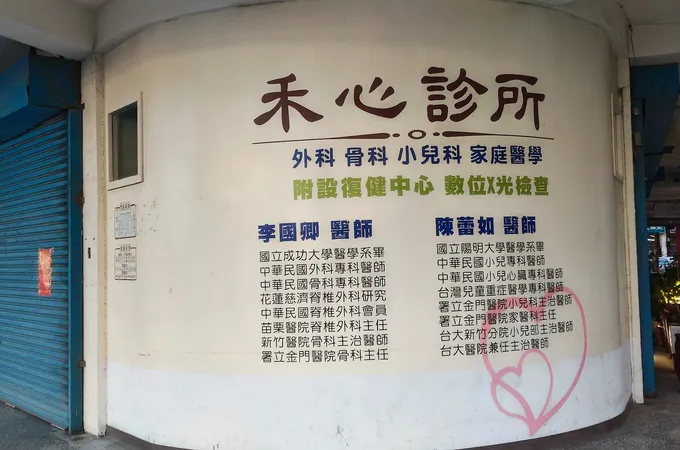 禾心診所
外科 骨科 小兒科 家庭醫學
附設復健中心 數位X光檢查
李國卿 醫師
國立成功大學醫學系畢
中華民國外科專科醫師
中華民國骨科專科醫師
花蓮慈濟脊椎外科研究
中華民國脊椎外科會員
苗栗醫院脊椎外科主任
新竹醫院骨科主治醫師
署立金門醫院骨科主任
陳蕾如 醫師
國立陽明大學醫學系畢
中華民國小兒專科醫師
中華民國小兒心臟專科醫師
台灣兒童重症醫學專科醫師
署立金門醫院小兒科主治醫師
署立金門醫院家醫科主任
台大新竹分院小兒部主治醫師
台大醫院兼任主治醫師